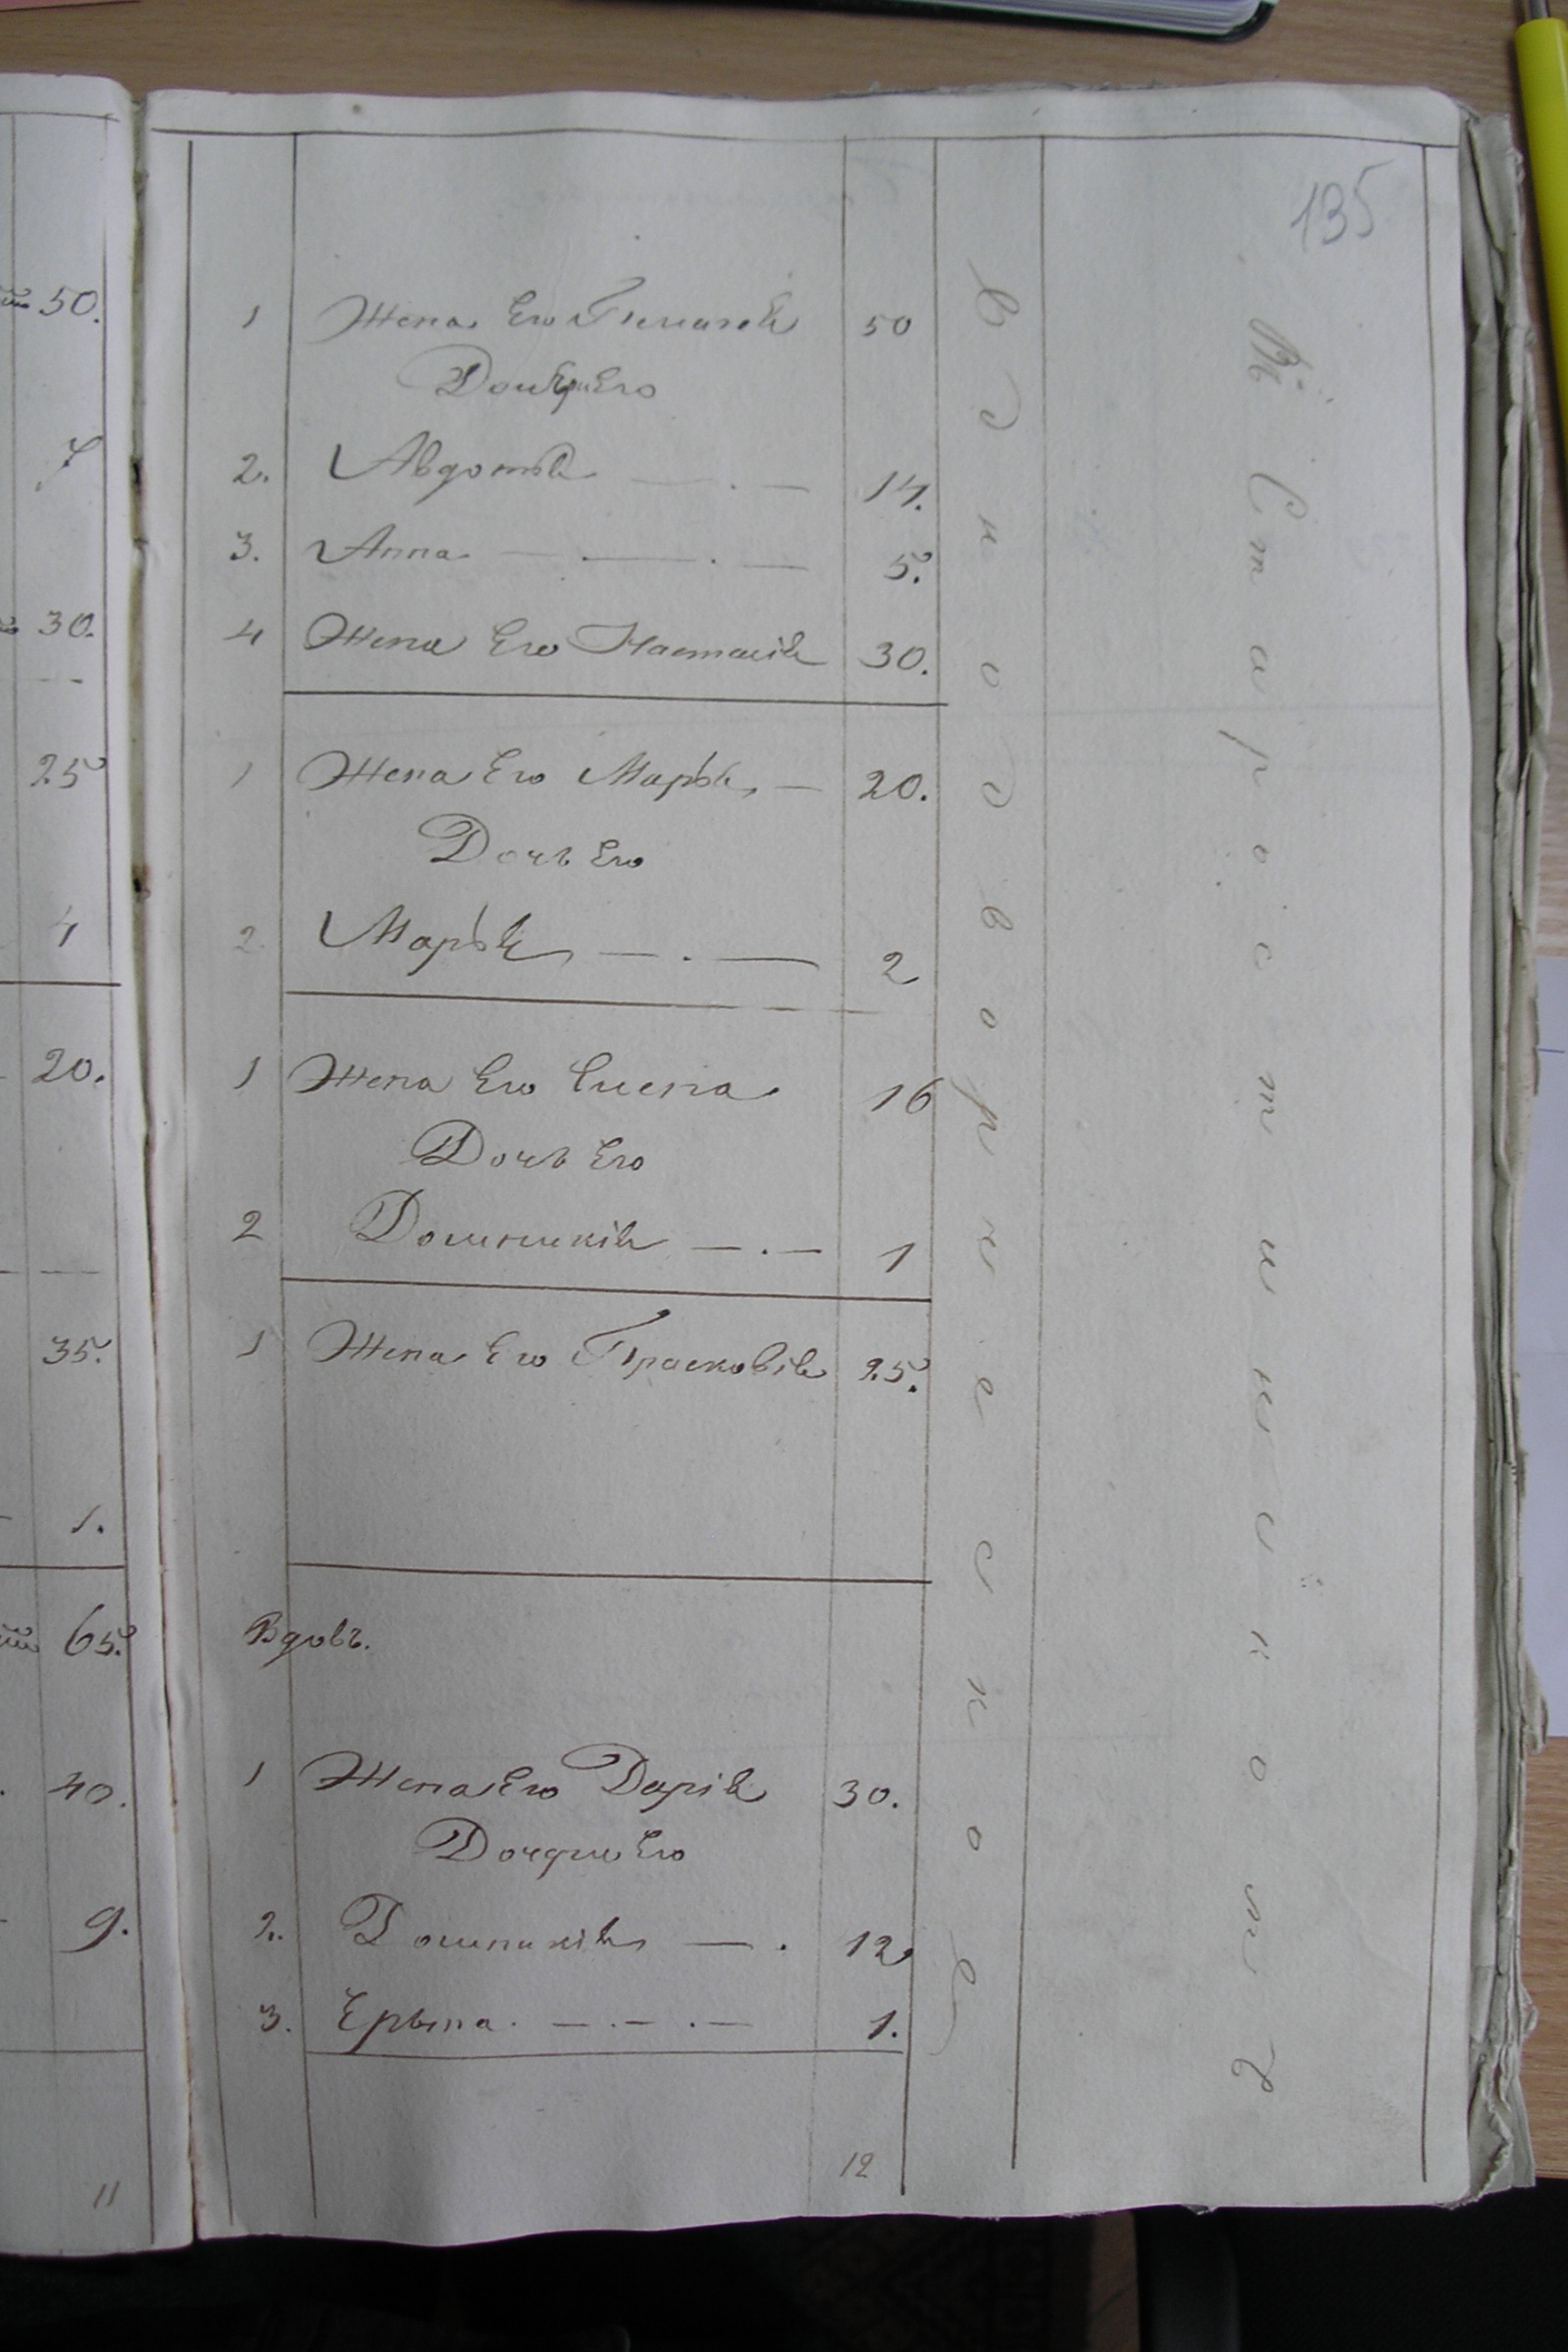 135
1 Жена Его 50
Дочери Его
2. Авдотья 14.
3. Анна 5.
4 Жена Его Настасія 30.
1 Жена Его Марья 20.
Дочь Его
2 Марья 2
1 Жена Его Елена 16
Дочь Его
2 Доминикія 1
1 Жена Его Прасковія 25.
Вдовъ.
1 Жена Его Дарія 30.
Дочери Его
2. Доминикія 12
3. 1.
12
Однодворческое
Старостинскому
50.
7
30.
25
4
20.
35.
1.
65.
40.
9.
11